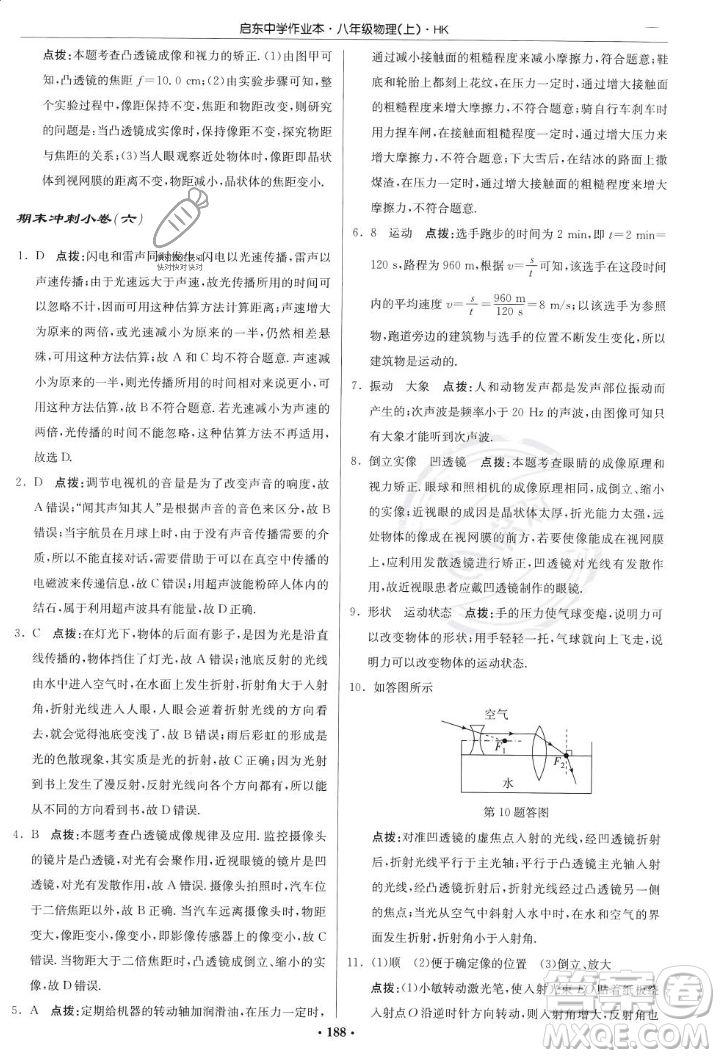 启东中学作业本·八年级物理(上)·HK
点拨:本题考查凸透镜成像和视力的矫正.(1)由图甲可
知,凸透镜的焦距 f=10.0 cm;(2)由实验步骤可知,整
个实验过程中,像距保持不变,焦距和物距改变,则研究
的问题是:当凸透镜成实像时,像距保持不变,探究物距
与焦距的关系;(3)当人眼观察近处物体时,像距即晶状
体到视网膜的距离不变,物距减小,晶状体的焦距变小.
期末冲刺小卷(六)
1. D 点拨:闪电和雷声同时发生,闪电以光速传播,雷声以
声速传播;由于光速远大于声速,光传播的时间相对可
以忽略不计,因此可以用这种估算方法计算距离;声速增大为
原来的两倍,或者光速减小为原来的一半,仍然光声悬
殊,可用这种方法估算;故 A 和 C 均不符合题意.声速减
小为原来的一半,光传播所用的时间相对声音更小,可用
这种方法估算;故 B 不符合题意.若光速减小为声速的
两倍,光传播的时间不能忽略,这个估算方法不能用.
故选 D.
2. D 点拨:调节电视机的音量是为了改变声音的响度,故
A 错误;“闻其声知其人”是根据声音的音色来辨别的,故
B 错误;当宇航员在月球上时,由于月球上没有空气,真空
不能传声,所以不能直接对话,需要借助于通话器中的
电磁波来传递信息,故 C 错误;用超声波能粉碎人体内的
结石,属于声波可以传递能量,故 D 正确.
3. C 点拨:在灯光下,物体的后面有影子,是因为光是沿直
线传播的,物体挡住了灯光,故 A 错误;池底反射的光线
从水中进入空气时,在水面上发生折射,折射角大于入射
角,折射光线进入人眼,人眼会逆着折射光线的方向看
去,就会觉得池底变浅,故 B 错误;雨后彩虹的形成属于
光的色散现象,其实质是光的折射,故 C 正确;光在物体
上发生了漫反射,反射光线向各个方向都有,所以从不同
方向都能看到,故 D 错误.
4. B 点拨:本题考查凸透镜成像规律及应用.监控摄像头
的镜片是凸透镜,对光有会聚作用,近视镜的镜片是凹透
镜,对光有发散作用,故 A 错误.摄像头拍照时,成倒立、
缩小的实像,故 B 正确.当汽车远离摄像头的时候,物距
变大,像距变小,像变小,即影像传感器上的像变小,故 C
错误.当物距大于二倍焦距时,像距在一倍焦距和二倍焦
距之间,故 D 错误.
5. A 点拨:定期给机器的转动轴加润滑油,在压力一定时,
通过减小接触面的粗糙程度来减小摩擦力,符合题意;鞋
底和轮胎上都刻有花纹,在压力一定时,通过增大接触面
的粗糙程度来增大摩擦力,不符合题意;骑自行车刹车时
用力捏车闸,在接触面粗糙程度一定时,通过增大压力来
增大摩擦力,不符合题意;下大雪后,在结冰的路上撒
煤渣,在压力一定时,通过增大接触面的粗糙程度来增大
摩擦力,不符合题意.
6. 8 运动 点拨:选手跑步的时间为 2 min,即 t=2 min=
120 s,路程为 960 m,根据 v=s/t 可得选手在这段时间内
的平均速度 v=s/t=960 m/120 s=8 m/s;以该选手为参照
物,跑道旁边的建筑物与选手的位置不断发生变化,故
建筑物是运动的.
7. 振动 大象 点拨:人和动物发声都是发声部位振动而
产生的;次声波是频率小于 20 Hz 的声波,由图可知可以
发出次声波的是大象.
8. 倒立实像 凹透镜 点拨:本题考查眼睛的成像原理和
视力矫正.眼球和照相机的成像原理相同,成倒立、缩小
的实像;近视眼的成因是晶状体太厚,折光能力太强,远
处物体的像成在视网膜的前方,若要使像成在视网膜
上,应利用发散透镜进行矫正.凹透镜对光线有发散作
用,故近视眼患者应戴凹透镜制作的眼镜.
9. 形状 运动状态 点拨:手的压力使气球变瘪,说明力
可以改变物体的形状;用手轻轻一托,气球就向上飞走,说
明力可以改变物体的运动状态.
10. 如答图所示
空气
F₁
F₂
水
第 10 题答图
点拨:对准凹透镜的虚焦点入射的光线,经凹透镜折射
后,折射光线平行于主光轴;平行于主光轴入射凸透镜
的光线,经凸透镜折射后折射光线过凸透镜另一侧的
焦点;当光线从空气中斜射入水中时,入射角大于折射
角,折射角小于入射角.
11. (1)顺 (2)便于确定像的位置 (3)倒立、放大
点拨:(1)小敏转动激光笔,使入射
点 O 沿逆时针方向转动,则入射角增大,反射角也
·188·
快对快对快对
快对快对快对
答案圈